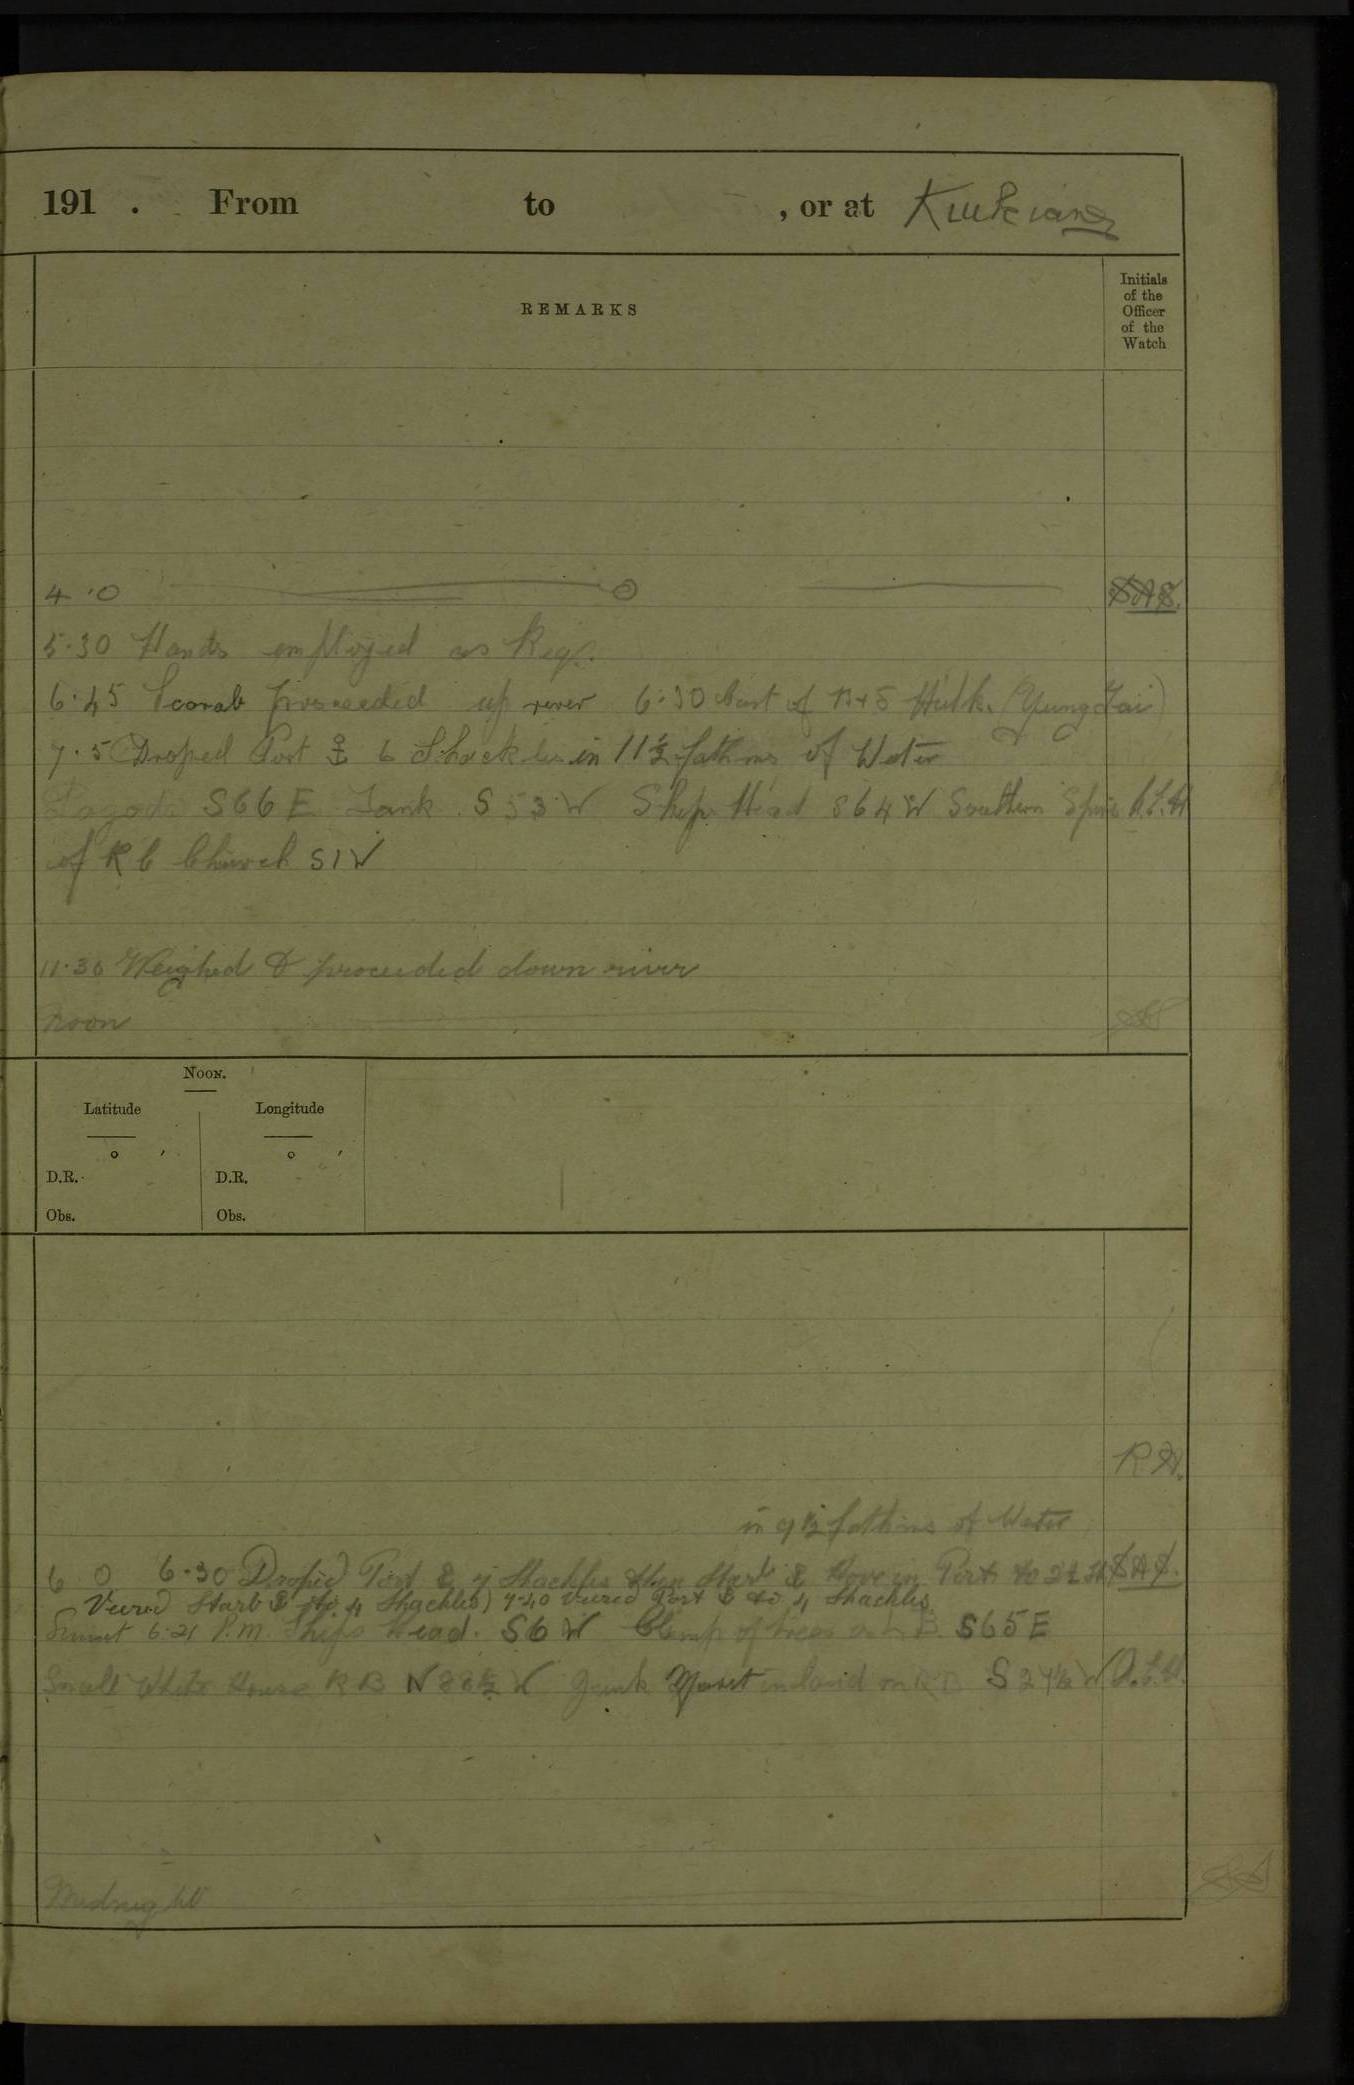 191 . From to , or at Kiukiang
REMARKS
Initials
of the
Officer
of the
Watch
4.0 SAS.
5.30 Hands employed as Req.
6.45 Scarab proceeded up river 6.30 Cast of B+S Hulk. (Yung Tai)
7.5 Droped Port ⚓ 6 Shackles in 11½ fathoms of Water
Pagoda S66E Tank S53W Ships Head S64W Southern Spire
of RC Church S1W
11.30 Weighed & proceeded down river
Noon
NOON.
Latitude Longitude
° ′ ° ′
D.R. D.R.
Obs. Obs.
R.H.
in 9½ fathoms of Water
6 0 6.30 Droped Port ⚓ 7 Shackles then Starb ⚓ Hove in Port to 2½ SAS.
Veered Starb ⚓ to 4 Shackles) 7.40 Veered Port ⚓ to 4 Shackles.
Sunset 6.21 P.M. Ships Head. S6W Clump of trees on L B. S65E
Small White House R B N88½W Junk Mast inland on R B S27½W
Midnight